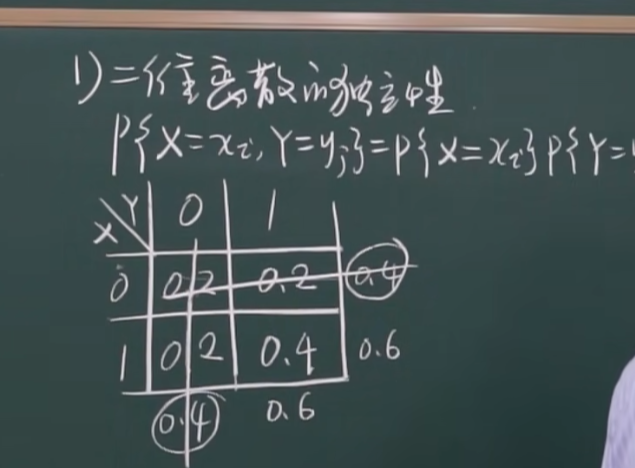 1)二维离散的独立性
P{X=xi,Y=yj}=P{X=xi}P{Y=
X Y 0 1
0 0.2 0.2 0.4
1 0.2 0.4 0.6
0.4 0.6